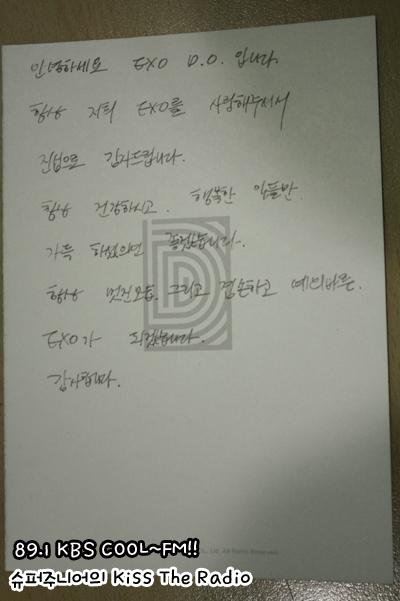 안녕하세요 EXO D.O. 입니다.
항상 저희 EXO를 사랑해주셔서
진심으로 감사드립니다.
항상 건강하시고. 행복한 일들만.
가득 하셨으면 좋겠습니다.
항상 멋진모습. 그리고 겸손하고 예의바른.
EXO가 되겠습니다.
감사합니다.
Co., Ltd. All Rights Reserved.
89.1 KBS COOL~FM!!
슈퍼주니어의 Kiss The Radio